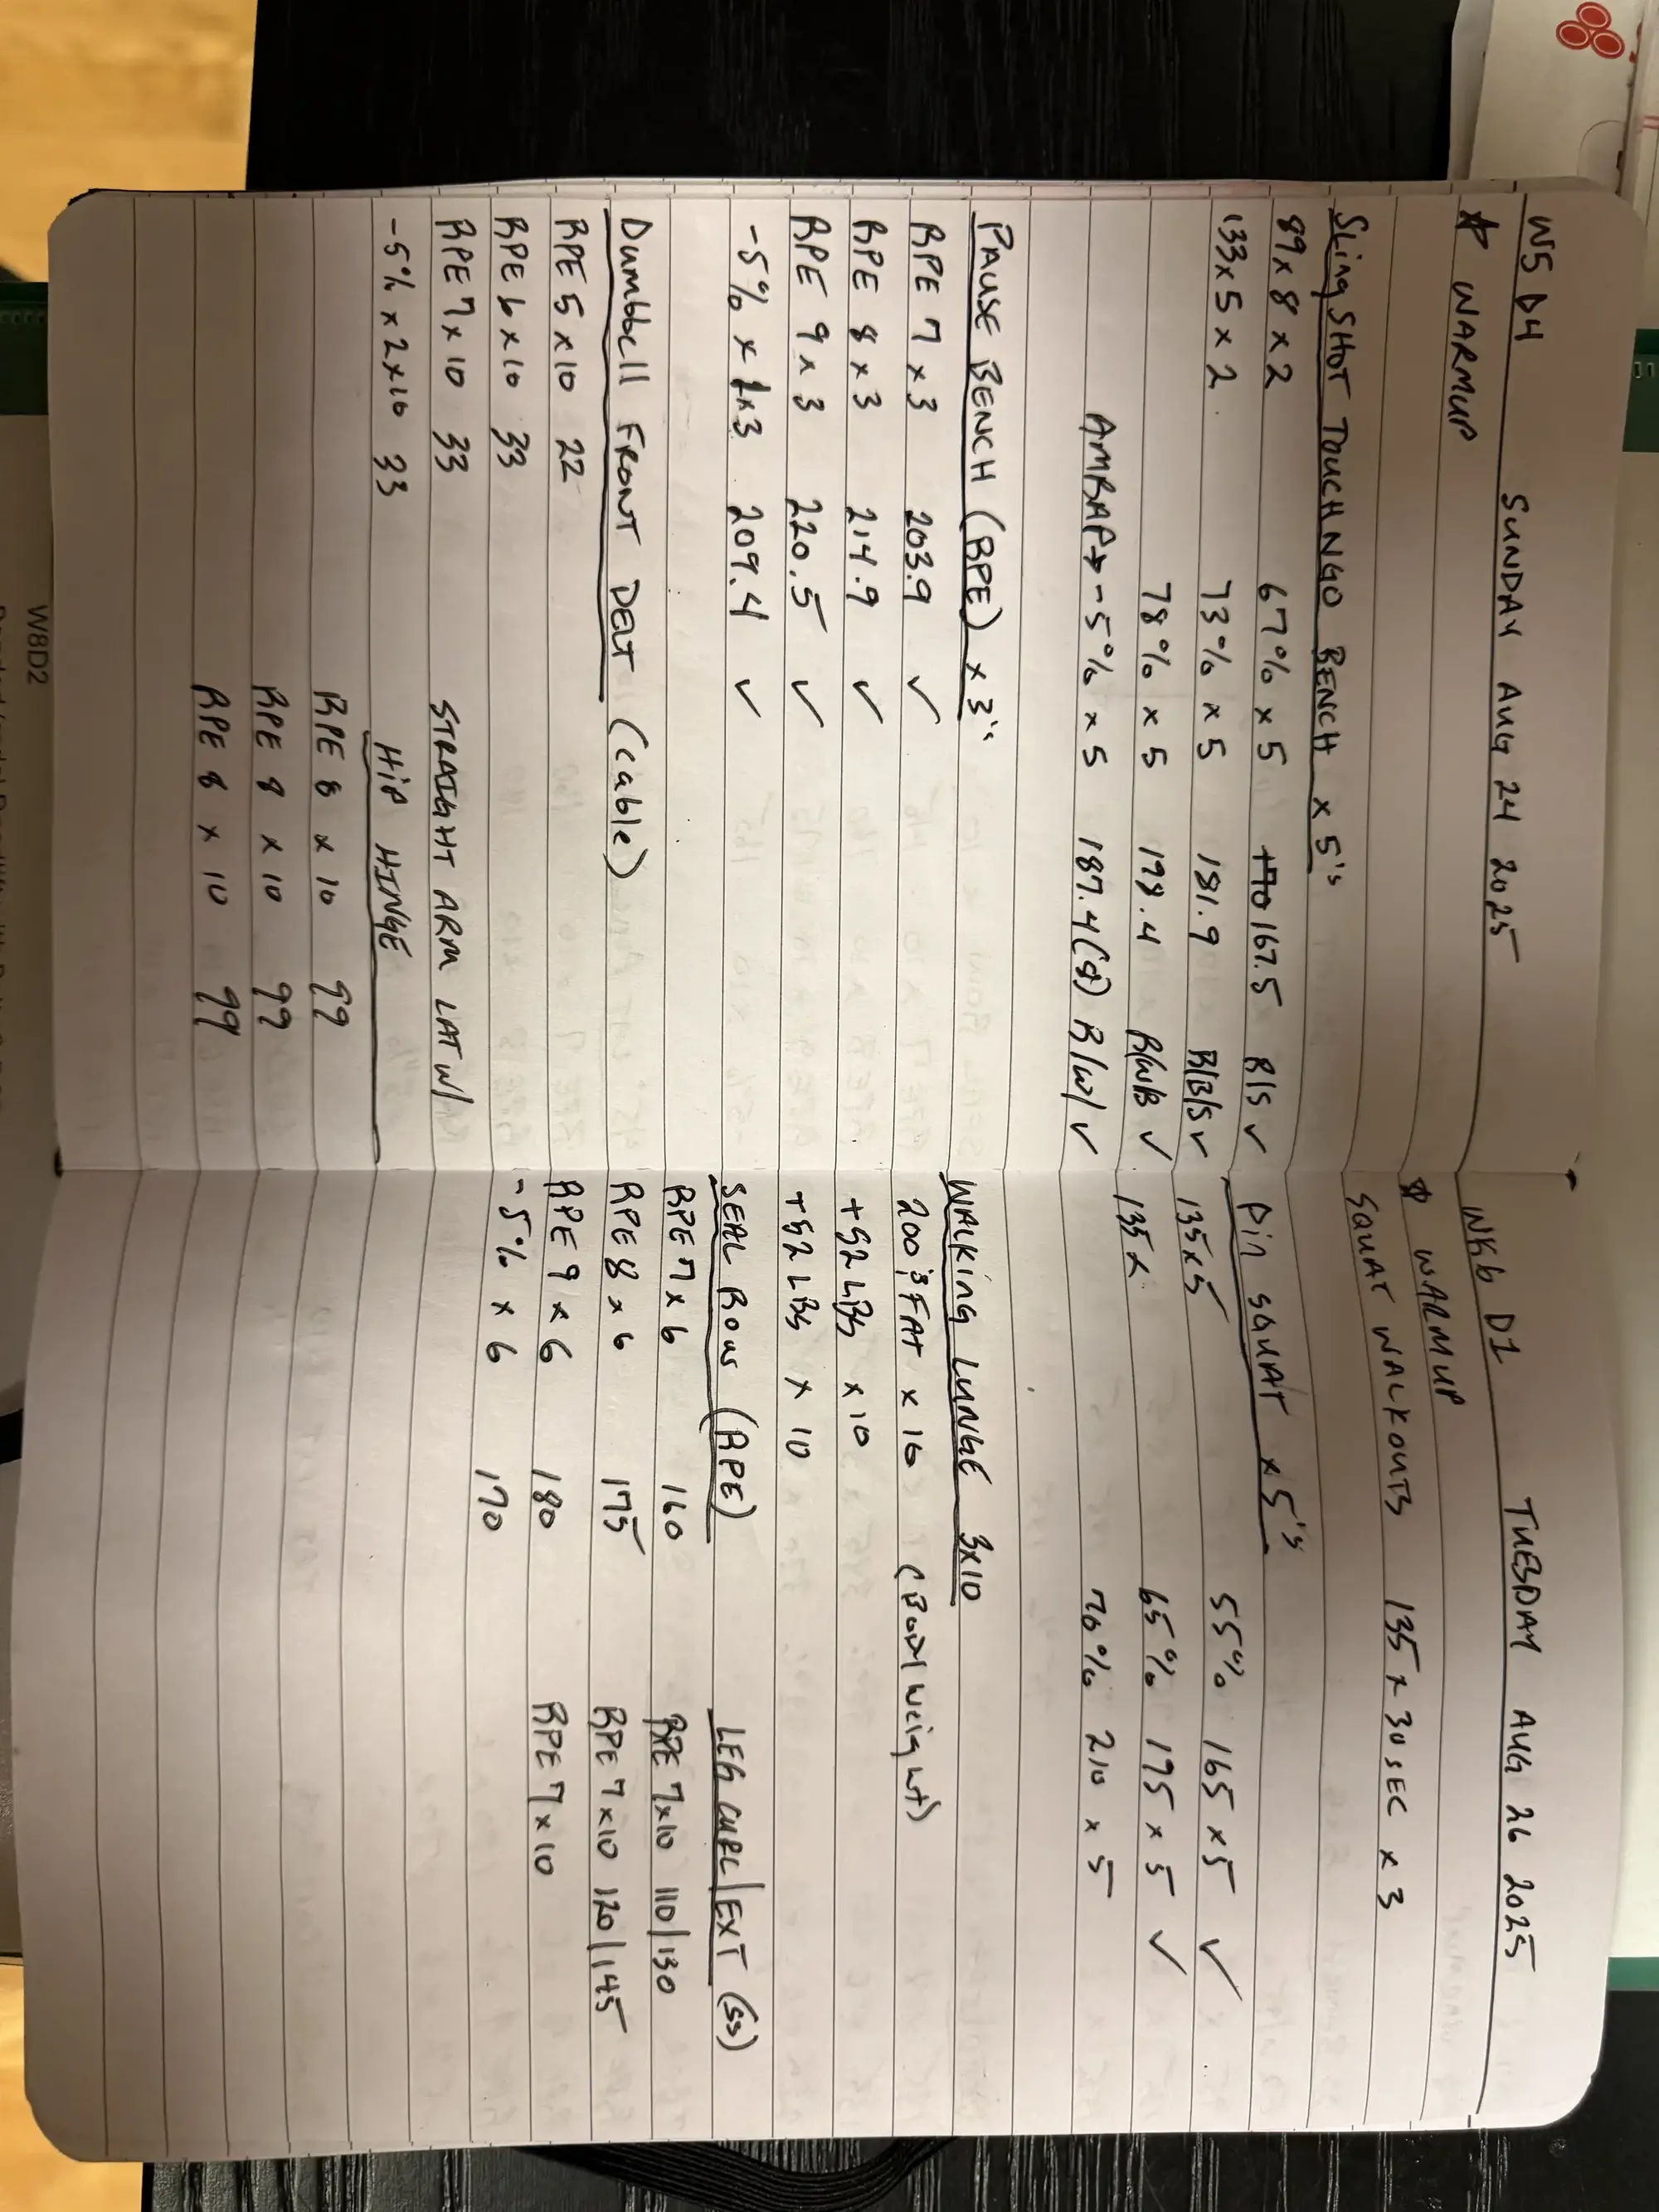 W5 D4 SUNDAY AUG 24 2025
* WARMUP
SLingSHOT TOUCHNGO BENCH x 5's
89 x 8 x 2 67% x 5 170 167.5 R/S ✓
133 x 5 x 2 73% x 5 181.9 R/B/S ✓
78% x 5 198.4 R/W/B ✓
AMRAP → -5% x 5 187.4 (8) R/W/ ✓
PAUSE BENCH (RPE) x 3's
RPE 7 x 3 203.9 ✓
RPE 8 x 3 214.9 ✓
RPE 9 x 3 220.5 ✓
-5% x 1x3 209.4 ✓
Dumbbell FRONT DELT (cable)
RPE 5 x 10 22
RPE 6 x 10 33
RPE 7 x 10 33
-5% x 2 x 10 33
STRAIGHT ARM LAT W/
HiP HINGE
RPE 8 x 10 99
RPE 8 x 10 99
RPE 8 x 10 99
WK6 D1 TUESDAY AUG 26 2025
* WARMUP
SQUAT WALKOUTS 135 x 30 SEC x 3
Pin SQUAT x 5's
135x5 55% 165 x 5 ✓
135 x 65% 195 x 5 ✓
70% 210 x 5
WALKING LUNGE 3x10
200 FAT x 10 (Bodyweight)
+52 LBS x 10
+52 LBS x 10
SEAL ROW (RPE)
RPE 7 x 6 160
RPE 8 x 6 175
RPE 9 x 6 180
-5% x 6 170
LEG CURL/EXT (SS)
RPE 7x10 110/130
RPE 7x10 120/145
RPE 7 x 10
W8D2